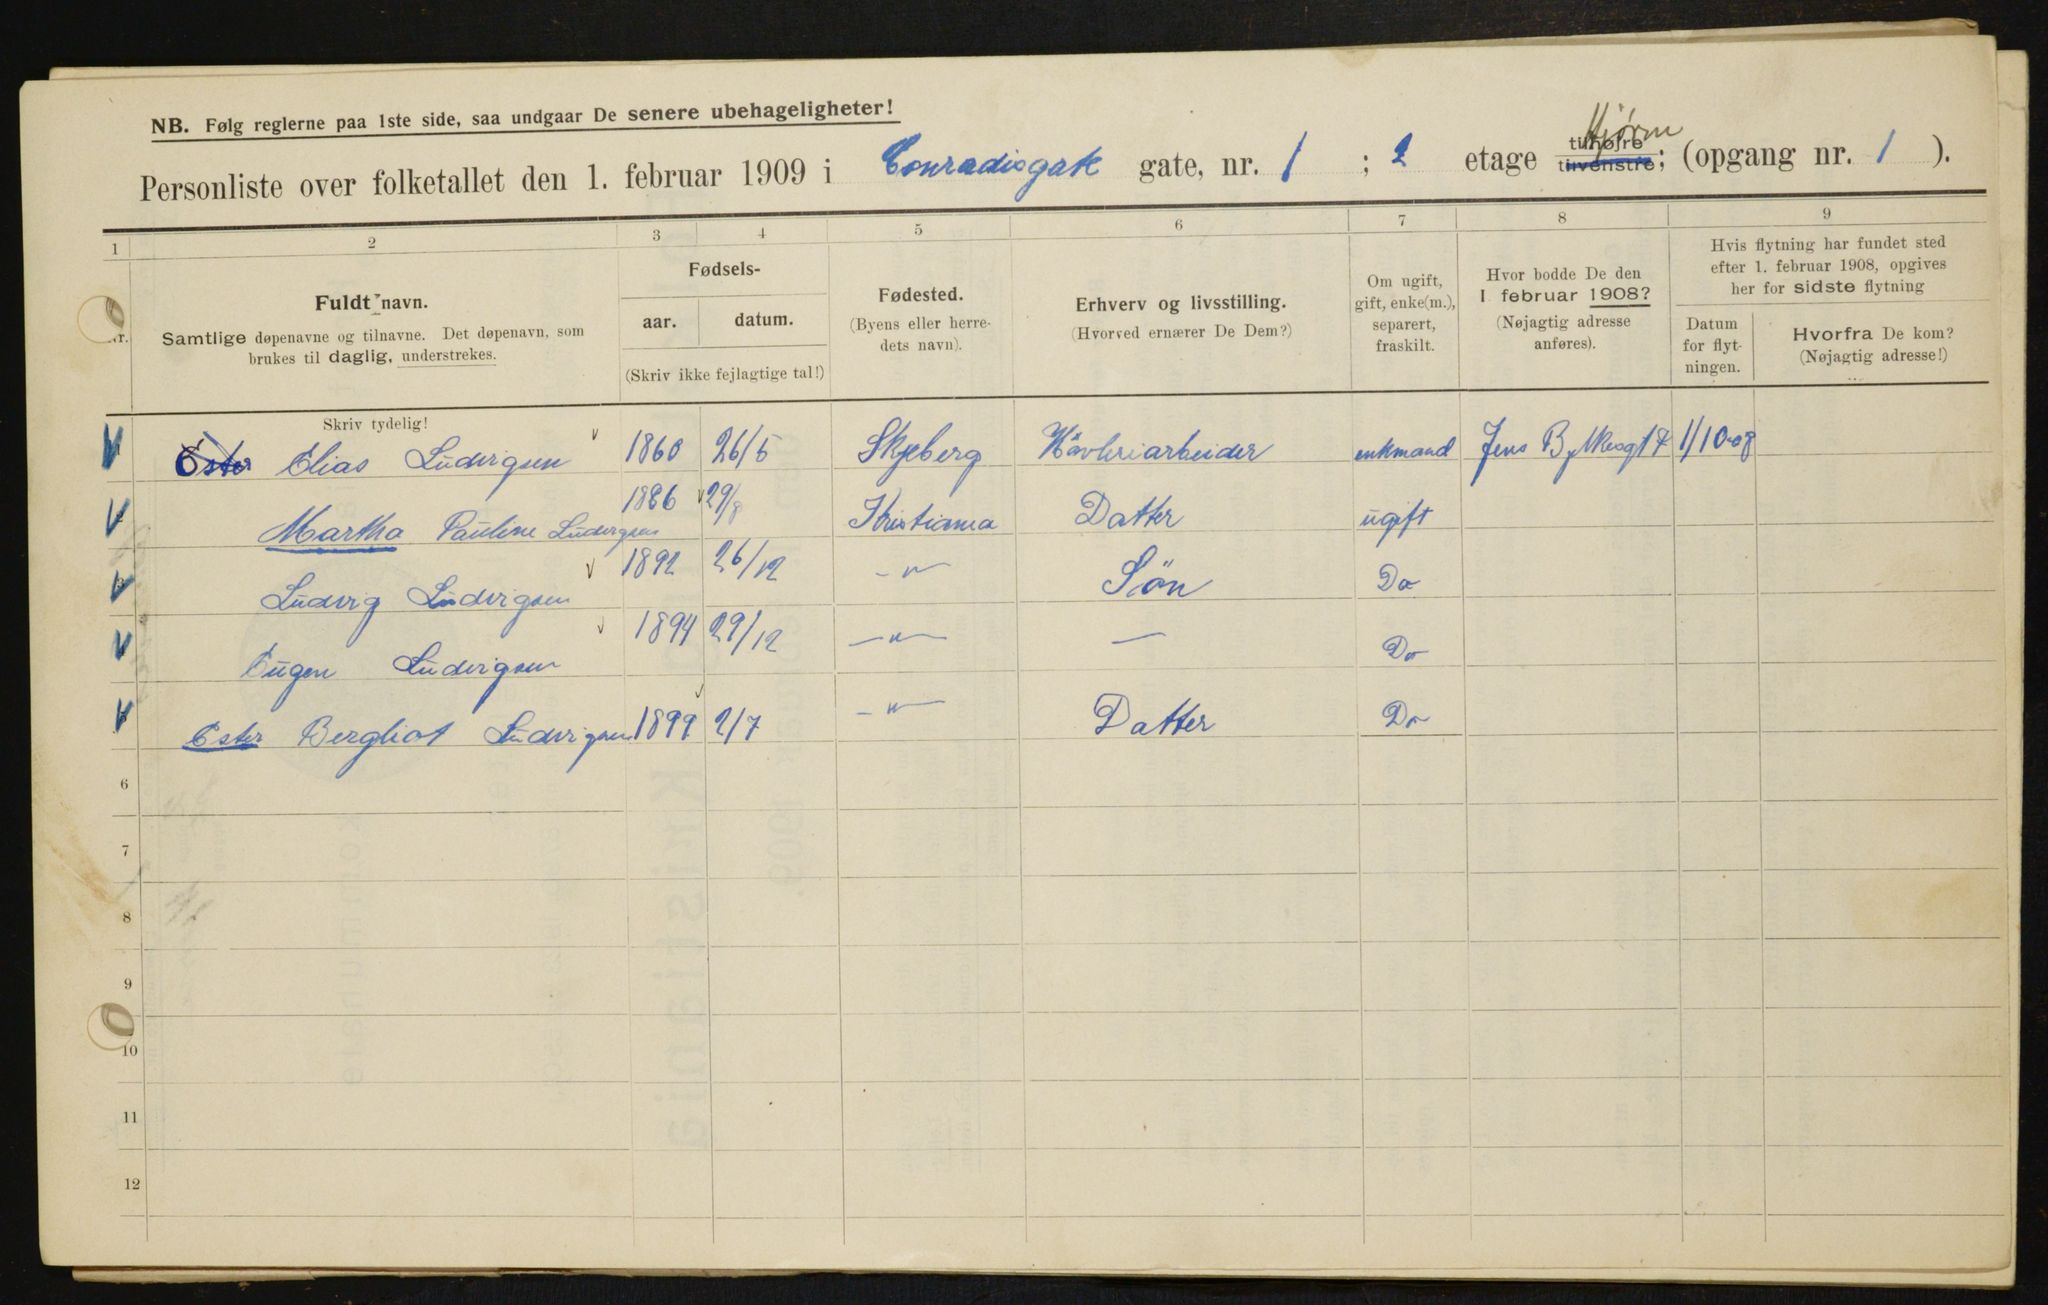 NB. Følg reglerne paa 1ste side, saa undgaar De senere ubehageligheter!
Personliste over folketallet den 1. februar 1909 i Conradisgate gate, nr. 1 ; 2 etage tilhøire tilvenstre Hjørne; (opgang nr. 1 ).
1 2 3 4 5 6 7 8 9
Nr.
Fuldt navn.
Samtlige døpenavne og tilnavne. Det døpenavn, som
brukes til daglig, understrekes.
Fødsels-
aar. datum.
(Skriv ikke fejlagtige tal!)
Fødested.
(Byens eller herre-
dets navn).
Erhverv og livsstilling.
(Hvorved ernærer De Dem?)
Om ugift,
gift, enke(m.),
separert,
fraskilt.
Hvor bodde De den
1 februar 1908?
(Nøjagtig adresse
anføres).
Hvis flytning har fundet sted
efter 1. februar 1908, opgives
her for sidste flytning
Datum
for flyt-
ningen.
Hvorfra De kom?
(Nøjagtig adresse!)
Skriv tydelig!
Ester Elias Ludvigsen 1860 26/5 Skjeberg Høvleriarbeider enkmand Jens Bjelkesgt 7 1/10-08
Martha Pauline Ludvigsen 1886 29/8 Kristiania Datter ugift
Ludvig Ludvigsen 1892 26/12 -"- Søn Do
Eugen Ludvigsen 1894 29/12 -"- — Do
Ester Bergliot Ludvigsen 1899 2/7 -"- Datter Do
6
7
8
9
10
11
12